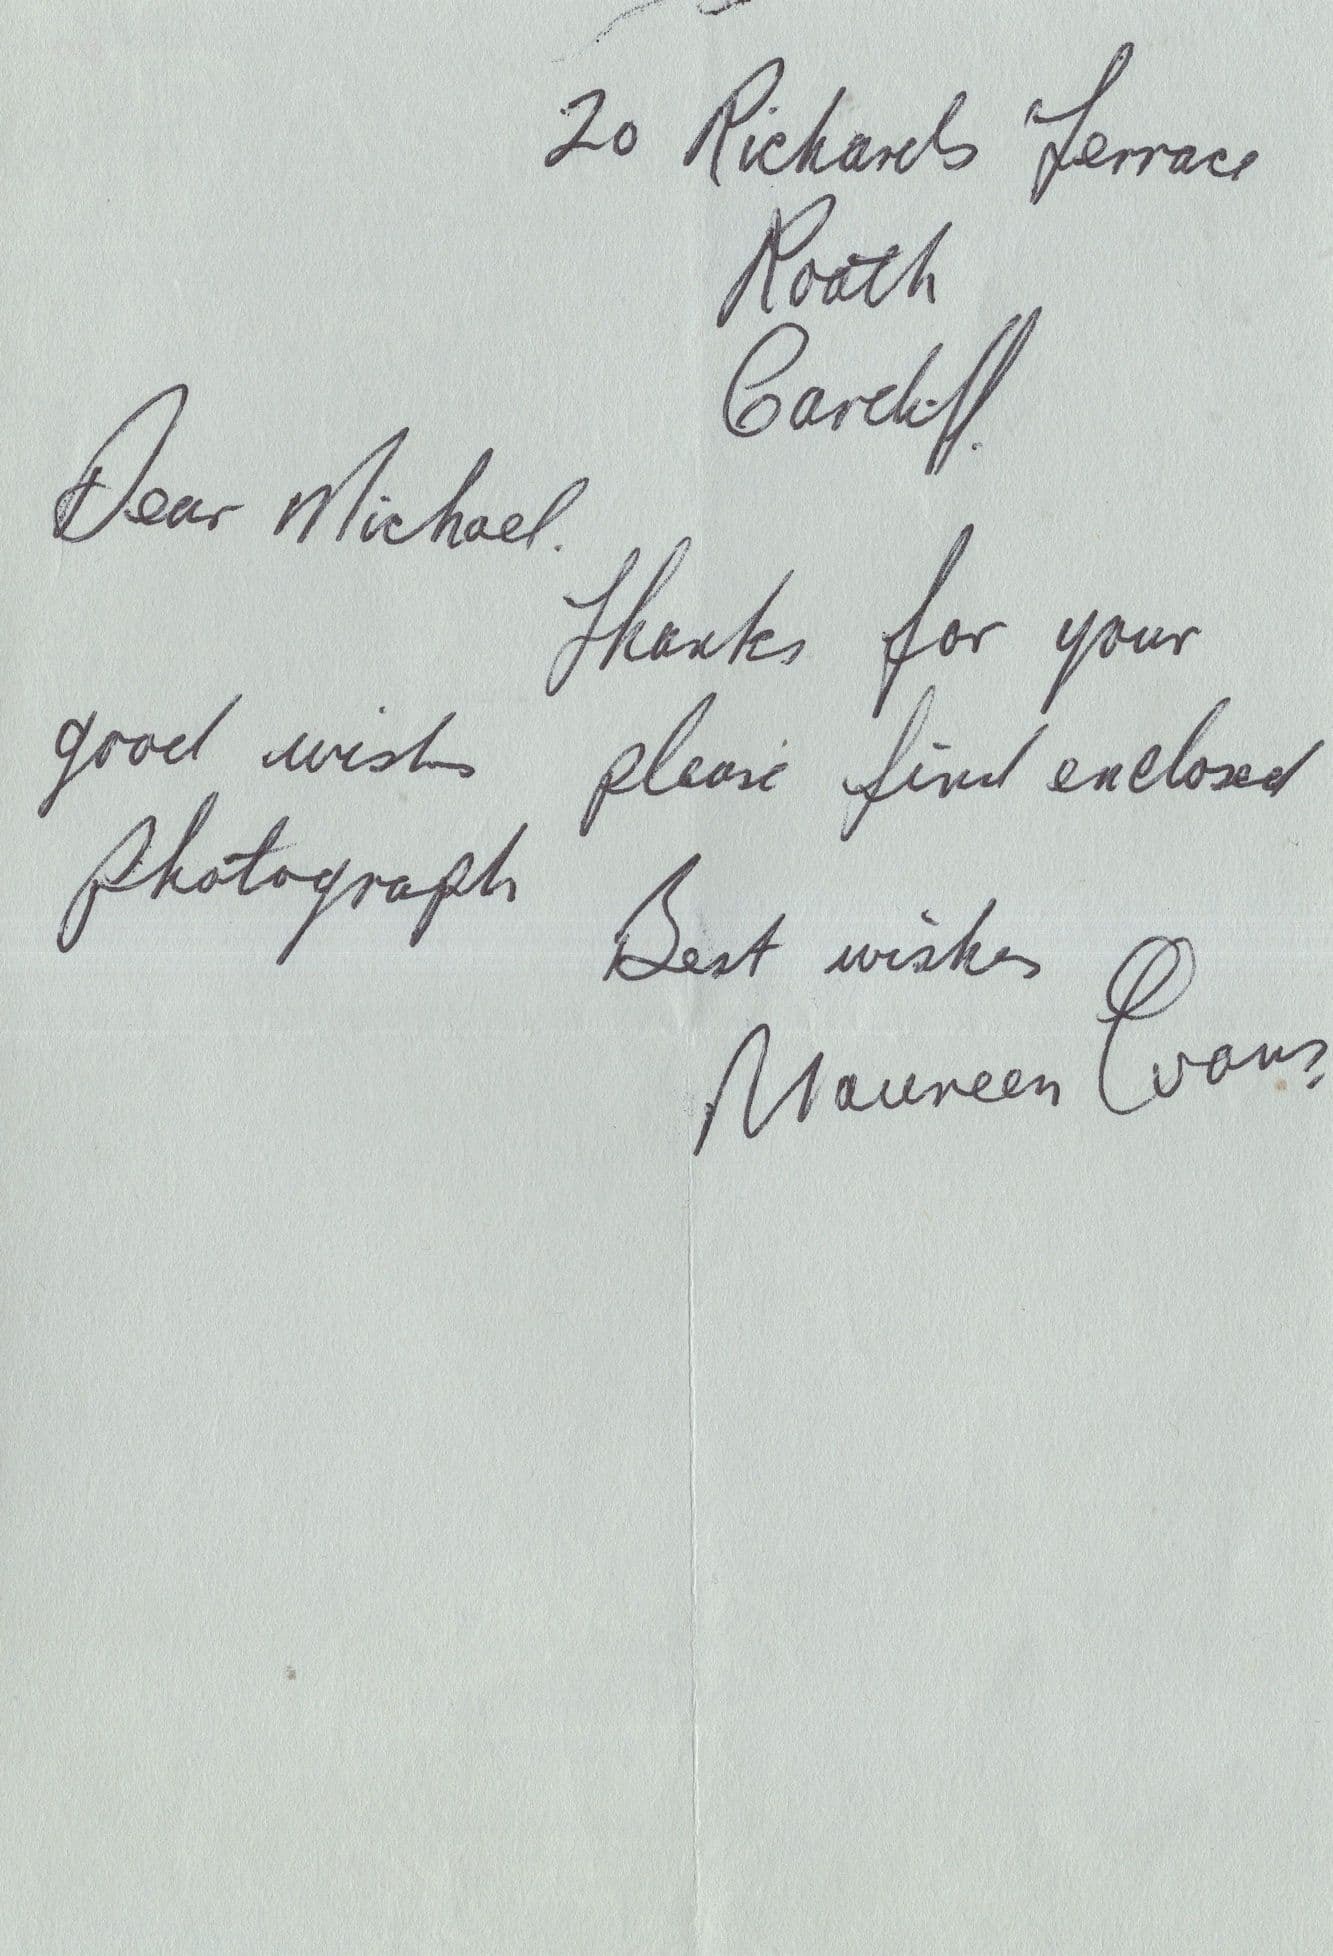 20 Richards Terrace
Roath
Cardiff.
Dear Michael.
Thanks for your
good wishes please find enclosed
photograph
Best wishes
Maureen Evans